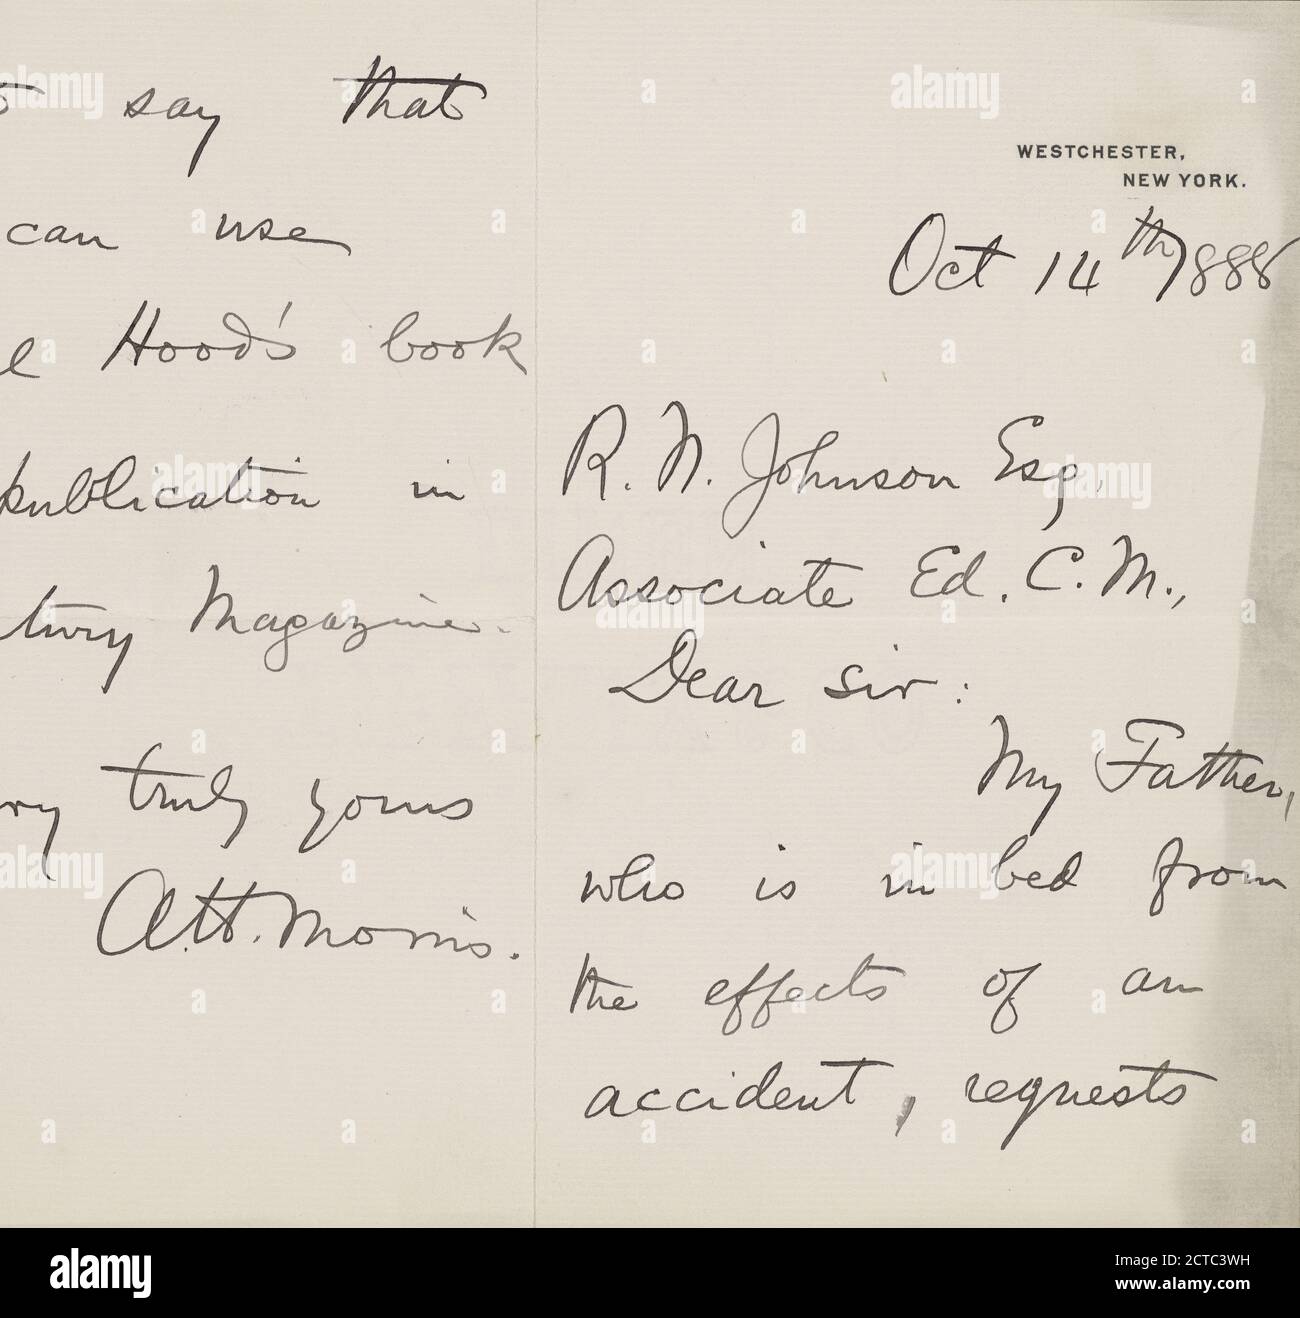 WESTCHESTER,
NEW YORK.
Oct 14th 1888
R. N. Johnson Esq.
Associate Ed. C. M.,
Dear sir:
My Father,
who is in bed from
the effects of an
accident, requests
say that
can use
Hood's book
publication in
tury Magazine.
ry truly yours
A. H. Morris.
alamy
Image ID: 2CTC3WH
www.alamy.com